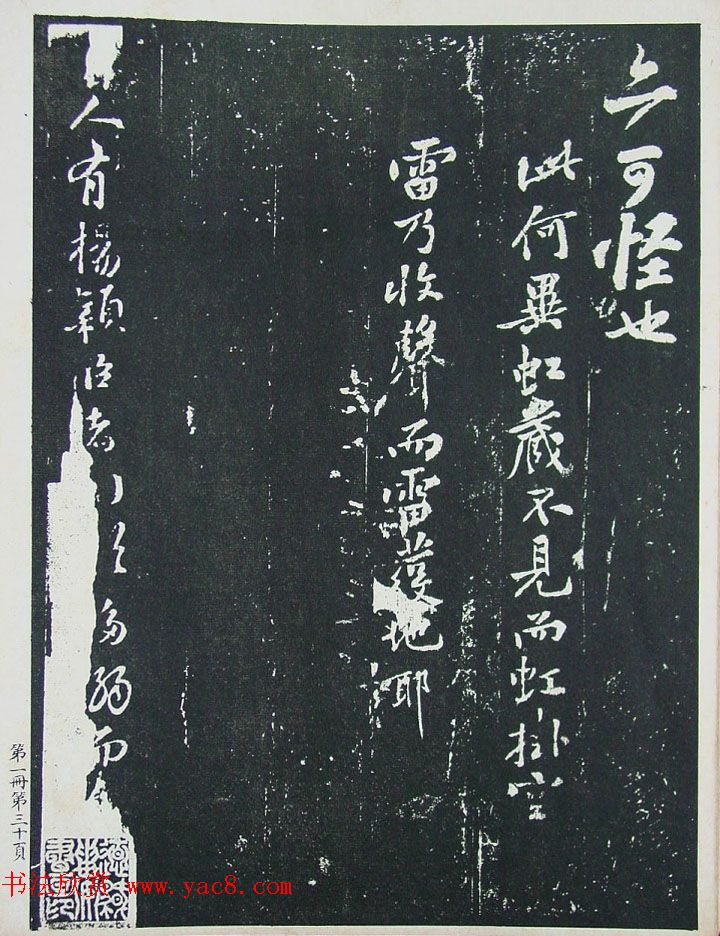 亦可怪也
此何異虹藏不見而虹掛空
雷乃收聲而雷發地耶
人有楊穎臣者 多弱而
第一冊第三十頁
书法欣赏 www.yac8.com